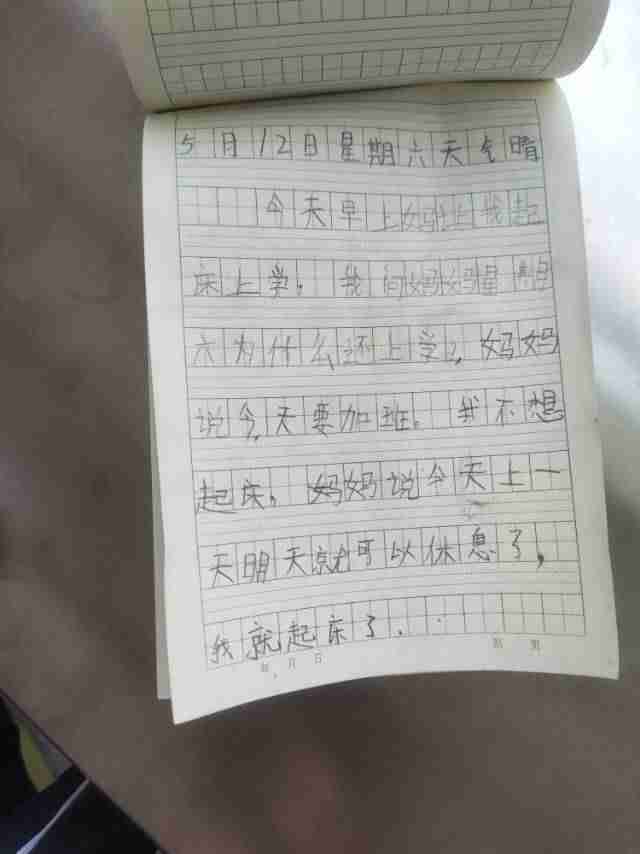 5月12日星期六天气晴
今天早上妈妈让我起
床上学。我问妈妈星期
六为什么还上学?,妈妈
说今,天要加班。我不想
起床,妈妈说今天上一
天明天就可以休息了,
我就起床了.
年 月 日 第 页